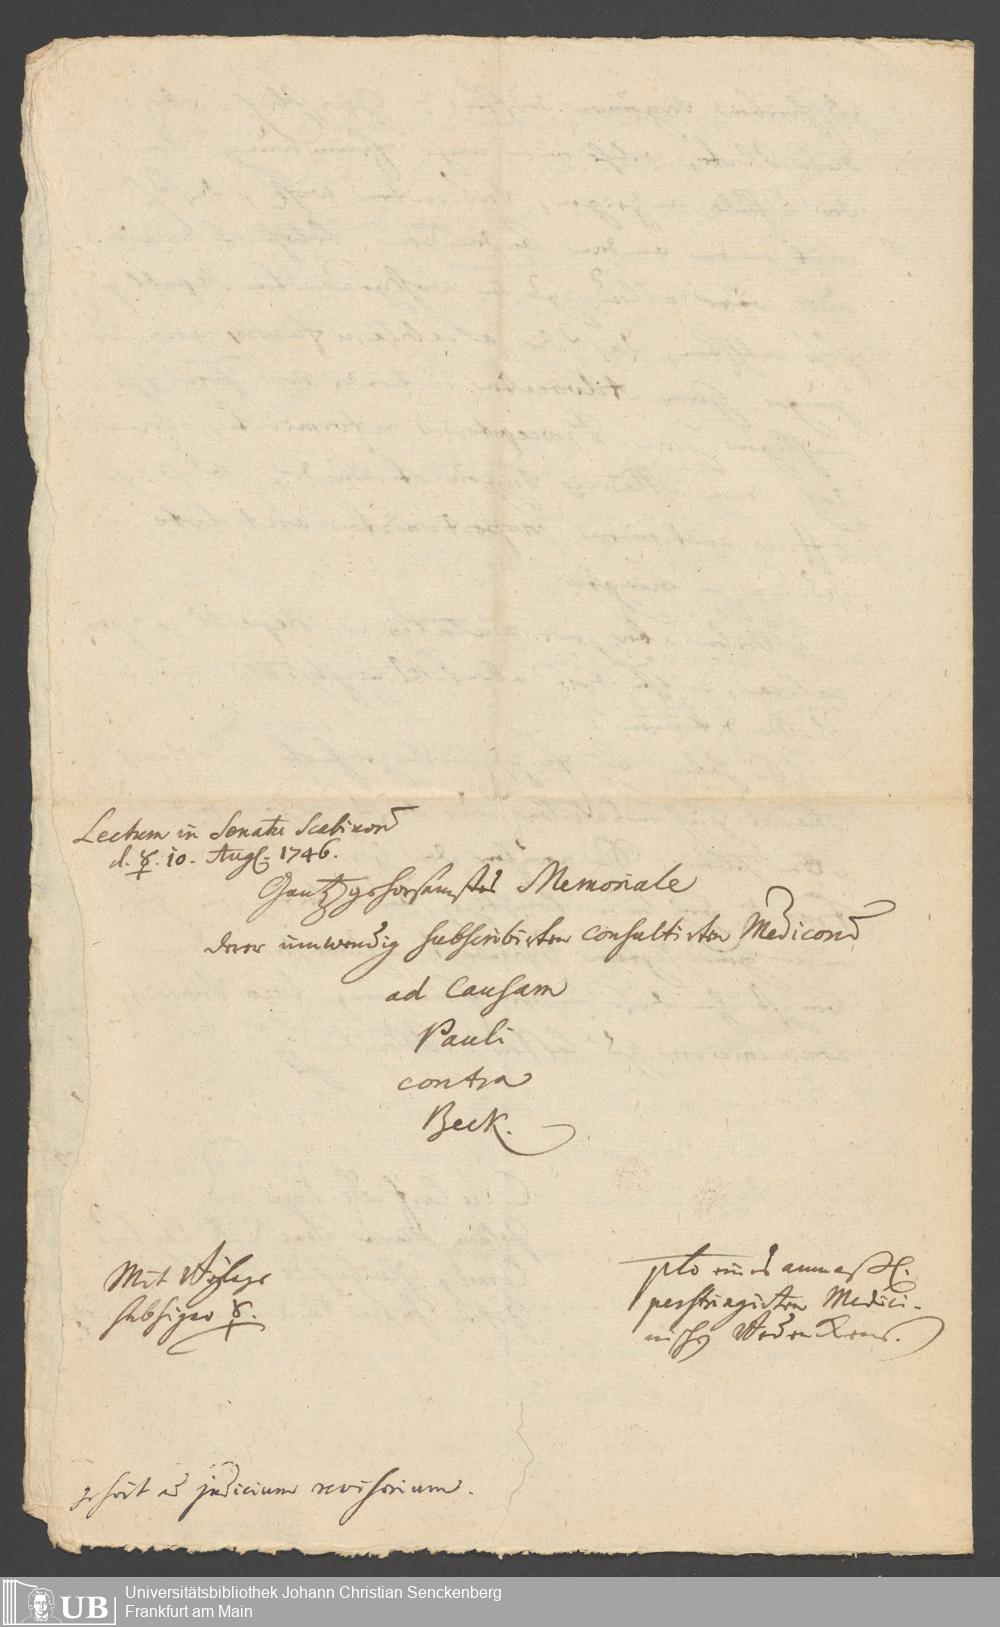 Lectum in Senatu Scabinor
d. ☿. 10. Augl. 1746.
Gantz gehorsamstes Memoriale
derer innwendig subscribirten consultirten Medicor
ad Causam
Pauli
contra
Beck.
Mit Beylage
subsigno ☿.
pto eines anmaßl.
perstringirten Medici-
nischen Bedenckens.
gehört ad judicium revisorium.
UB
Universitätsbibliothek Johann Christian Senckenberg
Frankfurt am Main